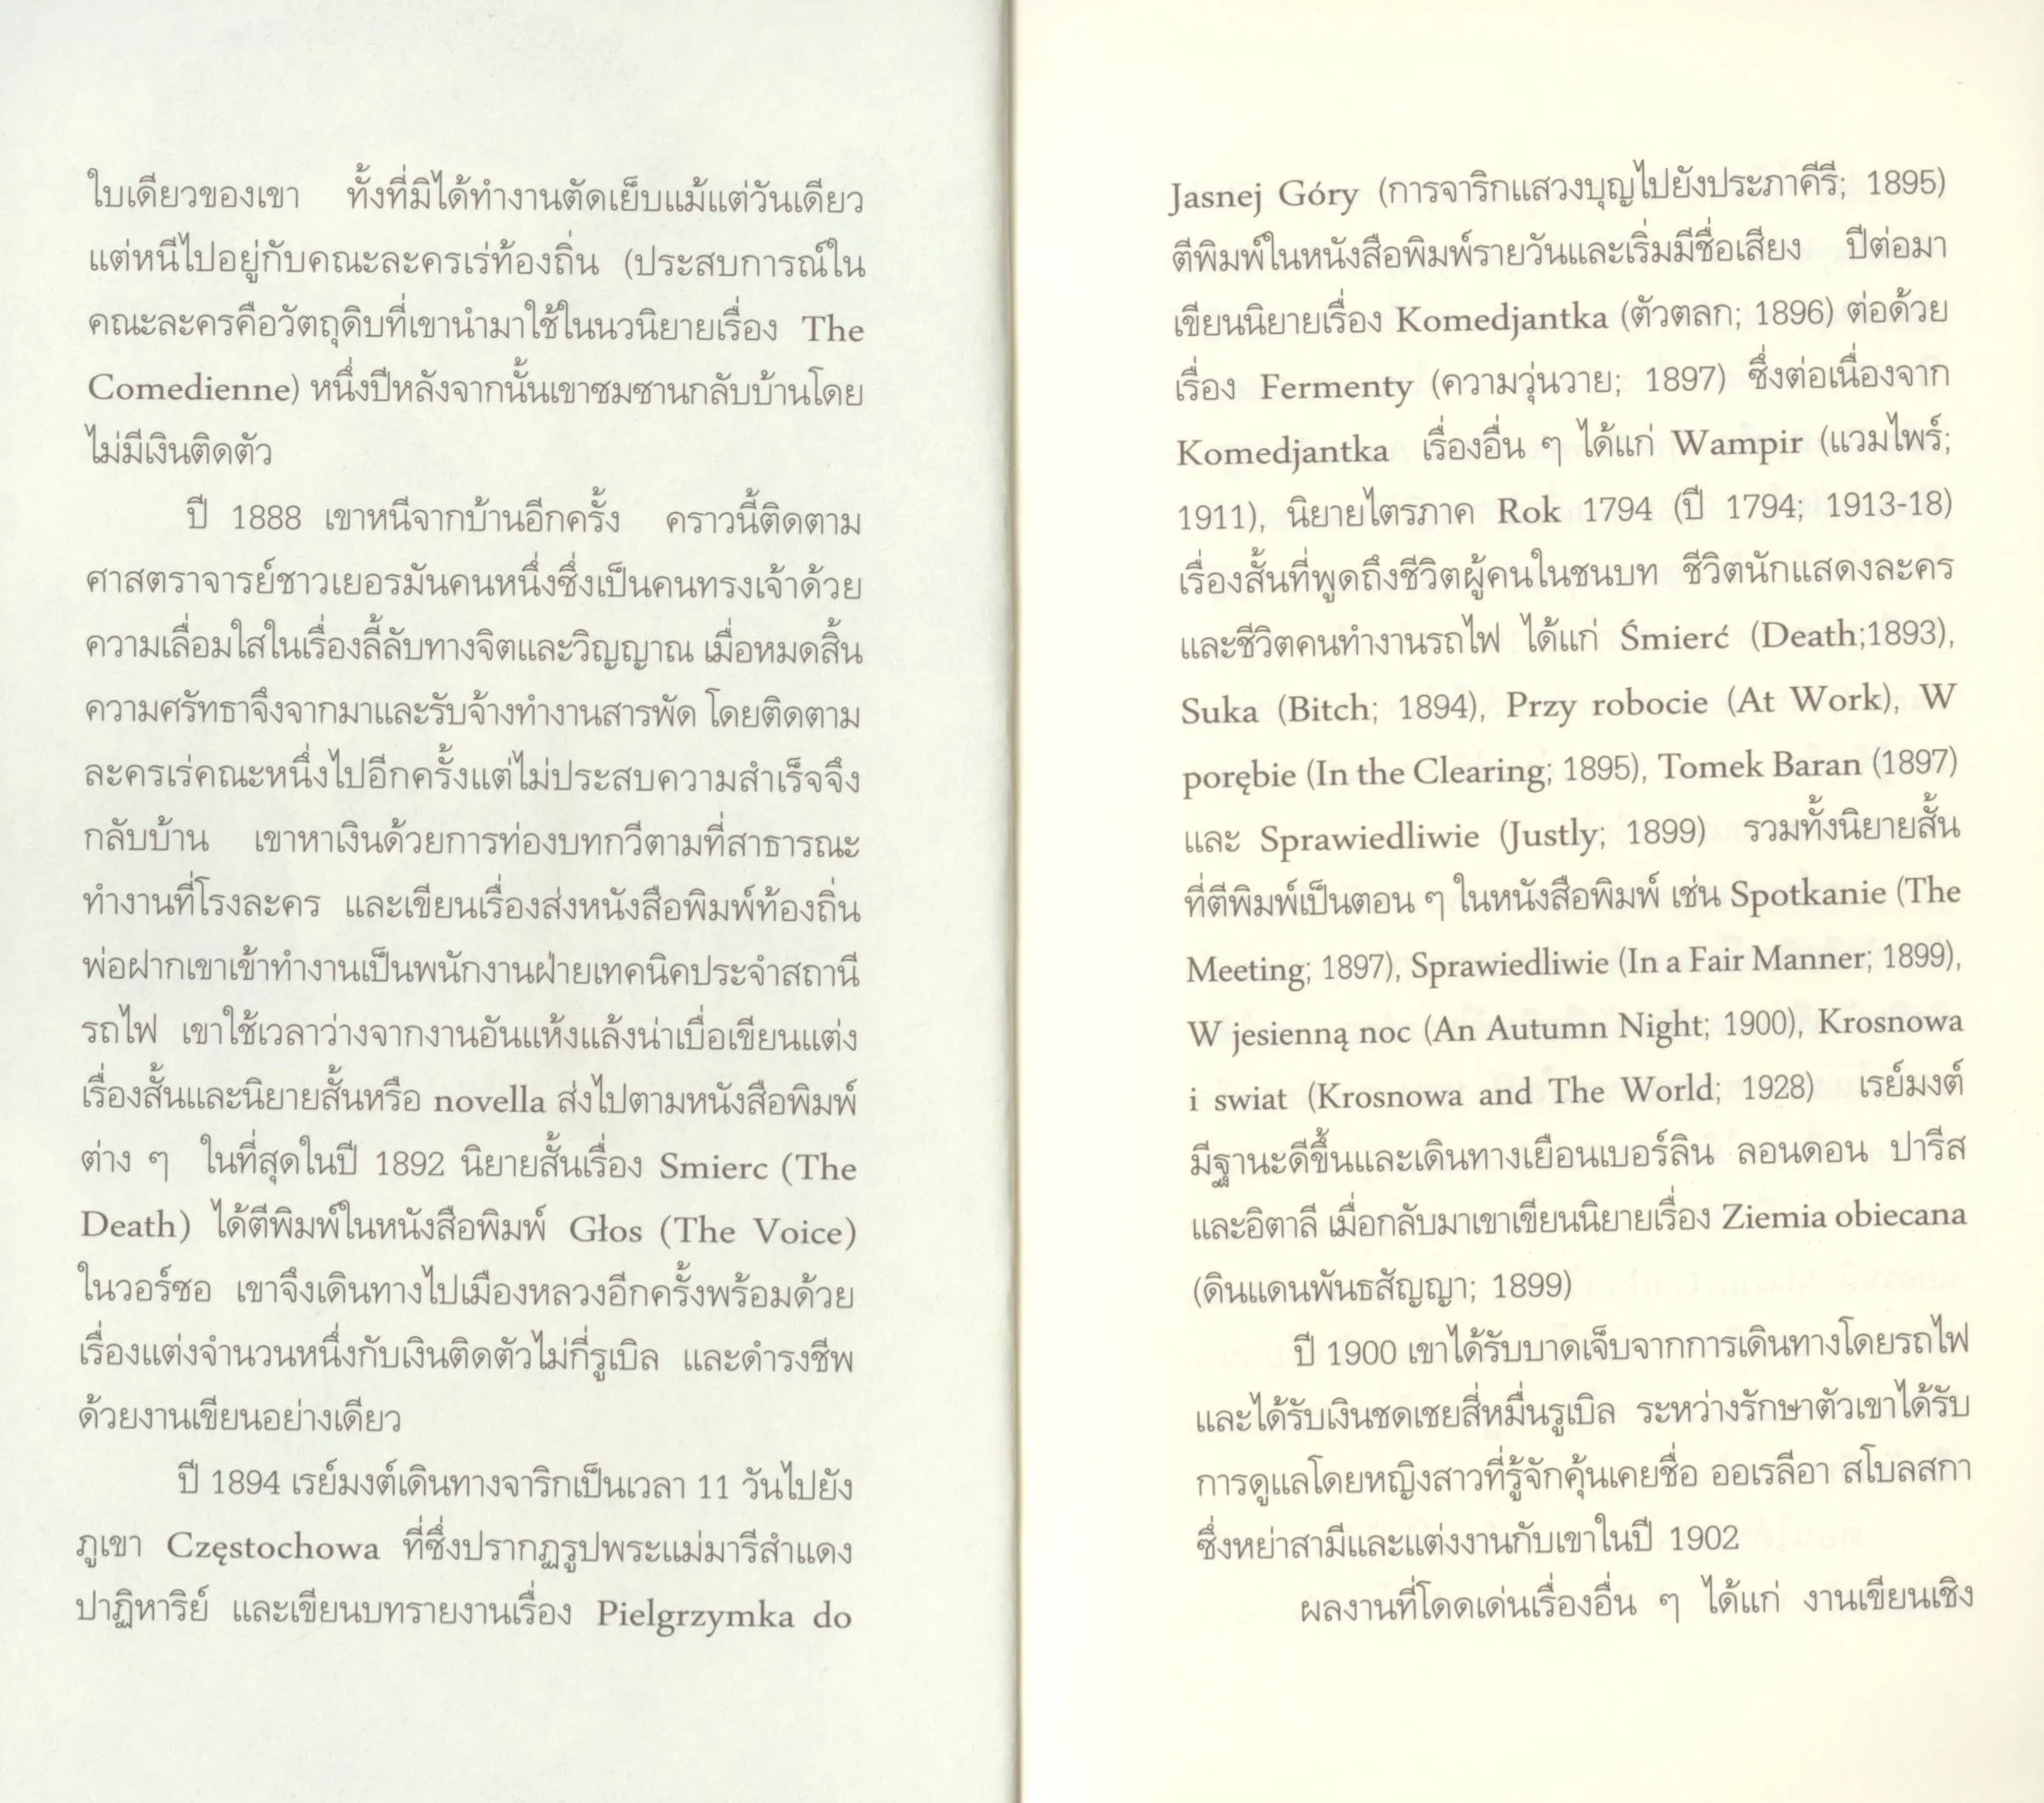 ใบเดียวของเขา ทั้งที่มิได้ทำงานตัดเย็บแม้แต่วันเดียว
แต่หนีไปอยู่กับคณะละครเร่ท้องถิ่น (ประสบการณ์ใน
คณะละครคือวัตถุดิบที่เขานำมาใช้ในนวนิยายเรื่อง The
Comedienne) หนึ่งปีหลังจากนั้นเขาซมซานกลับบ้านโดย
ไม่มีเงินติดตัว
ปี 1888 เขาหนีจากบ้านอีกครั้ง คราวนี้ติดตาม
ศาสตราจารย์ชาวเยอรมันคนหนึ่งซึ่งเป็นคนทรงเจ้าด้วย
ความเลื่อมใสในเรื่องลี้ลับทางจิตและวิญญาณ เมื่อหมดสิ้น
ความศรัทธาจึงจากมาและรับจ้างทำงานสารพัด โดยติดตาม
ละครเร่คณะหนึ่งไปอีกครั้งแต่ไม่ประสบความสำเร็จจึง
กลับบ้าน เขาหาเงินด้วยการท่องบทกวีตามที่สาธารณะ
ทำงานที่โรงละคร และเขียนเรื่องส่งหนังสือพิมพ์ท้องถิ่น
พ่อฝากเขาเข้าทำงานเป็นพนักงานฝ่ายเทคนิคประจำสถานี
รถไฟ เขาใช้เวลาว่างจากงานอันแห้งแล้งน่าเบื่อเขียนแต่ง
เรื่องสั้นและนิยายสั้นหรือ novella ส่งไปตามหนังสือพิมพ์
ต่าง ๆ ในที่สุดในปี 1892 นิยายสั้นเรื่อง Smierc (The
Death) ได้ตีพิมพ์ในหนังสือพิมพ์ Głos (The Voice)
ในวอร์ซอ เขาจึงเดินทางไปเมืองหลวงอีกครั้งพร้อมด้วย
เรื่องแต่งจำนวนหนึ่งกับเงินติดตัวไม่กี่รูเบิล และดำรงชีพ
ด้วยงานเขียนอย่างเดียว
ปี 1894 เรย์มงต์เดินทางจาริกเป็นเวลา 11 วันไปยัง
ภูเขา Częstochowa ที่ซึ่งปรากฏรูปพระแม่มารีสำแดง
ปาฏิหาริย์ และเขียนบทรายงานเรื่อง Pielgrzymka do
Jasnej Góry (การจาริกแสวงบุญไปยังประภาคีรี; 1895)
ตีพิมพ์ในหนังสือพิมพ์รายวันและเริ่มมีชื่อเสียง ปีต่อมา
เขียนนิยายเรื่อง Komedjantka (ตัวตลก; 1896) ต่อด้วย
เรื่อง Fermenty (ความวุ่นวาย; 1897) ซึ่งต่อเนื่องจาก
Komedjantka เรื่องอื่น ๆ ได้แก่ Wampir (แวมไพร์;
1911), นิยายไตรภาค Rok 1794 (ปี 1794; 1913-18)
เรื่องสั้นที่พูดถึงชีวิตผู้คนในชนบท ชีวิตนักแสดงละคร
และชีวิตคนทำงานรถไฟ ได้แก่ Śmierć (Death;1893),
Suka (Bitch; 1894), Przy robocie (At Work), W
porębie (In the Clearing; 1895), Tomek Baran (1897)
และ Sprawiedliwie (Justly; 1899) รวมทั้งนิยายสั้น
ที่ตีพิมพ์เป็นตอน ๆ ในหนังสือพิมพ์ เช่น Spotkanie (The
Meeting; 1897), Sprawiedliwie (In a Fair Manner; 1899),
W jesienną noc (An Autumn Night; 1900), Krosnowa
i swiat (Krosnowa and The World; 1928) เรย์มงต์
มีฐานะดีขึ้นและเดินทางเยือนเบอร์ลิน ลอนดอน ปารีส
และอิตาลี เมื่อกลับมาเขาเขียนนิยายเรื่อง Ziemia obiecana
(ดินแดนพันธสัญญา; 1899)
ปี 1900 เขาได้รับบาดเจ็บจากการเดินทางโดยรถไฟ
และได้รับเงินชดเชยสี่หมื่นรูเบิล ระหว่างรักษาตัวเขาได้รับ
การดูแลโดยหญิงสาวที่รู้จักคุ้นเคยชื่อ ออเรลีอา สโบลสกา
ซึ่งหย่าสามีและแต่งงานกับเขาในปี 1902
ผลงานที่โดดเด่นเรื่องอื่น ๆ ได้แก่ งานเขียนเชิง